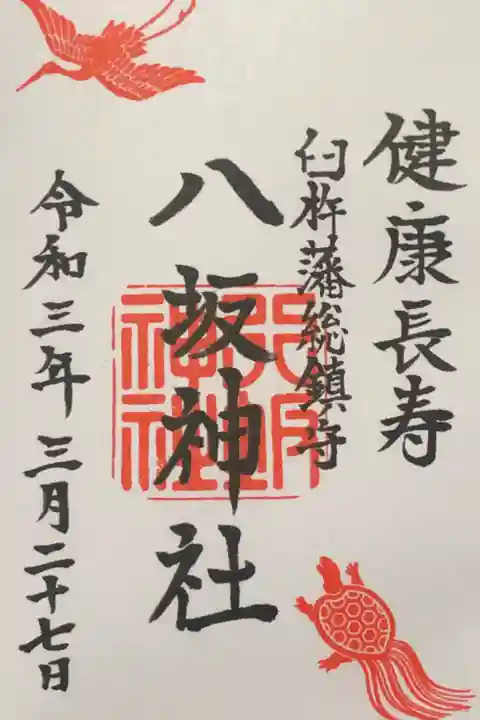 健康長寿
臼杵藩総鎮守
八坂神社
八坂神社
令和三年三月二十七日